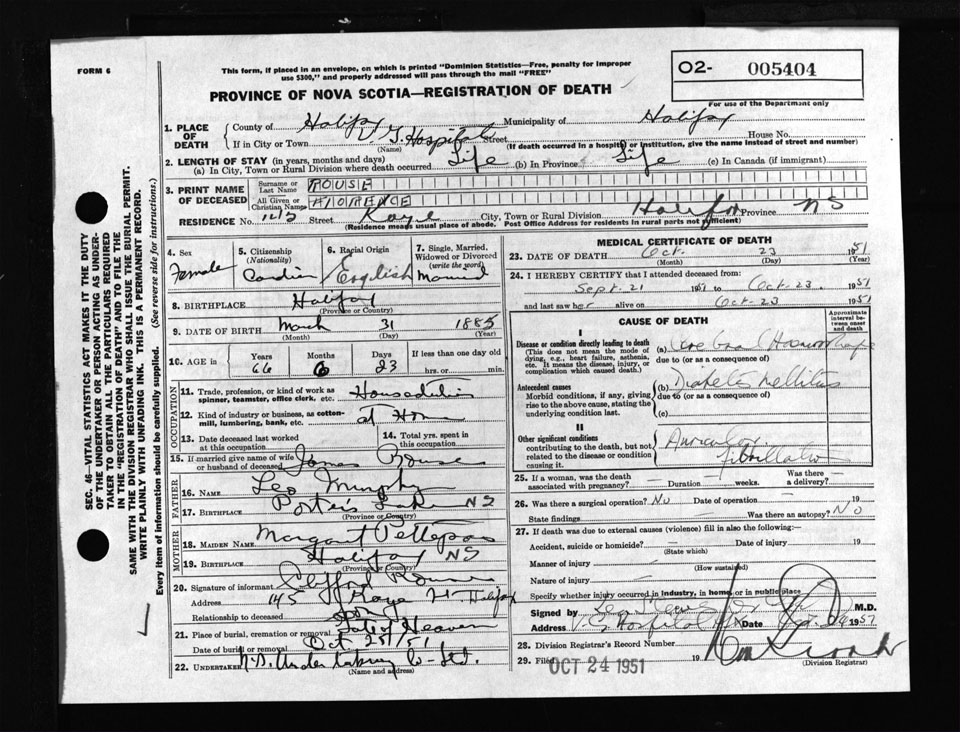 FORM 6
This form, if placed in an envelope, on which is printed "Dominion Statistics—Free, penalty for improper
use $300," and properly addressed will pass through the mail "FREE"
O2- 005404
PROVINCE OF NOVA SCOTIA—REGISTRATION OF DEATH
For use of the Department only
1. PLACE OF DEATH { County of Halifax Municipality of Halifax
If in City or Town V. G. Hospital Street House No.
(Name) (If death occurred in a hospital or institution, give the name instead of street and number)
2. LENGTH OF STAY (in years, months and days)
(a) In City, Town or Rural Division where death occurred Life (b) In Province Life (c) In Canada (if immigrant)
3. PRINT NAME OF DECEASED { Surname or Last Name ROUSE
All Given or Christian Names FLORENCE
RESIDENCE No. 145 Street Kaye City, Town or Rural Division Halifax Province NS
(Residence means usual place of abode. Post Office Address for residents in rural parts not sufficient)
4. Sex Female
5. Citizenship (Nationality) Canadian
6. Racial Origin English
7. Single, Married, Widowed or Divorced (write the word) Married
8. BIRTHPLACE Halifax
(Province or Country)
9. DATE OF BIRTH March 31 1885
(Month) (Day) (Year)
10. AGE in Years 66 Months 6 Days 23 If less than one day old
hrs. or min.
OCCUPATION
11. Trade, profession, or kind of work as
spinner, teamster, office clerk, etc. Houseduties
12. Kind of industry or business, as cotton-
mill, lumbering, bank, etc. at Home
13. Date deceased last worked
at this occupation
14. Total yrs. spent in
this occupation
15. If married give name of wife
or husband of deceased James Rouse
FATHER
16. NAME Leo Murphy
17. BIRTHPLACE Porter's Lake NS
(Province or Country)
MOTHER
18. MAIDEN NAME Margaret Pettepas
19. BIRTHPLACE Halifax NS
(Province or Country)
20. Signature of informant Clifford Rouse
Address 145 Kaye St. Halifax
Relationship to deceased Son
21. Place of burial, cremation or removal Gate of Heaven
Date of burial or removal Oct. 25/51
22. UNDERTAKER N.S. Undertaking Co. Ltd.
(Name and address)
MEDICAL CERTIFICATE OF DEATH
23. DATE OF DEATH Oct. 23 1951
(Month) (Day) (Year)
24. I HEREBY CERTIFY that I attended deceased from:
Sept. 21 1951 to Oct-23. 1951
and last saw her alive on Oct-23 1951
CAUSE OF DEATH
Approximate interval between onset and death
I
Disease or condition directly leading to death
(This does not mean the mode of
dying, e.g., heart failure, asthenia,
etc. It means the disease, injury, or
complication which caused death.)
(a) Cerebral Haemorrhage
due to (or as a consequence of)
Antecedent causes
Morbid conditions, if any, giving
rise to the above cause, stating the
underlying condition last.
(b) Diabetes Mellitus
due to (or as a consequence of)
(c)
II
Other significant conditions
contributing to the death, but not
related to the disease or condition
causing it.
Auricular
Fibrillation
25. If a woman, was the death
associated with pregnancy? — Duration — weeks. Was there
a delivery? —
26. Was there a surgical operation? No Date of operation — 19
State findings — Was there an autopsy? No
27. If death was due to external causes (violence) fill in also the following:—
Accident, suicide or homicide? — Date of injury — 19
(State which)
Manner of injury —
(How sustained)
Nature of injury —
Specify whether injury occurred in industry, in home, or in public place
Signed by M.D.
Address V. G. Hospital Date Oct. 24 1951
28. Division Registrar's Record Number
29. Filed OCT 24 1951
(Division Registrar)
SEC. 46—VITAL STATISTICS ACT MAKES IT THE DUTY
OF THE UNDERTAKER OR PERSON ACTING AS UNDER-
TAKER TO OBTAIN ALL THE PARTICULARS REQUIRED
IN THE "REGISTRATION OF DEATH" AND TO FILE THE
SAME WITH THE DIVISION REGISTRAR WHO SHALL ISSUE THE BURIAL PERMIT.
WRITE PLAINLY WITH UNFADING INK. THIS IS A PERMANENT RECORD.
Every item of information should be carefully supplied. (See reverse side for instructions.)